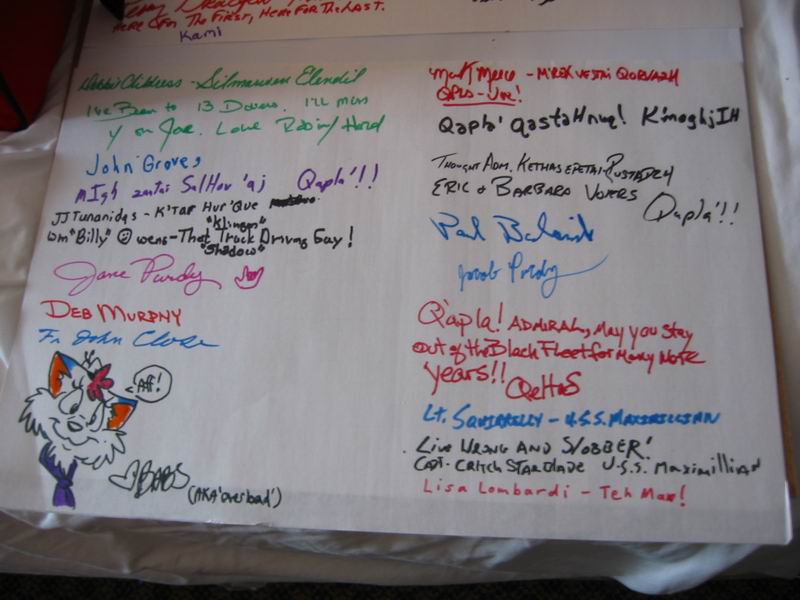 HERE FOR THE FIRST, HERE FOR THE LAST.
Kami
Debbi Childress - Silmarwen Elendil
I've Been to 13 Dovers. I'll miss
y on Joe. Love Robin Hood
John Groves
mIgh zantai SalHov 'aj Qapla'!!
JJ Tunanidas - K'Tar Hur'Que
"Klingon"
Wm "Billy" Owens - That Truck Driving Guy!
"Shadow"
Jane Purdy
DEB MURPHY
Fr. John Close
Aff!
BABS
(AKA 'overload')
Mark Merce - M'REK VESTAI QORVAZH
QPLA - Joe!
Qapla' qastaHnuq! K'moghjIH
THOUGHT ADM. KETHAS EPETAI-RUSTADZH
ERIC & BARBARA VOTERS
Qapla'!!
Jacob Purdy
Q'apla! ADMIRAL, MAY YOU STAY
out of the Black Fleet for Many More
years!!
QeHaS
LT. SQUIRRELLY - U.S.S. MAXIMILLIAN
LIVE WRONG AND SLOBBER!
CAPT. CRITCH STARBLADE U.S.S. MAXIMILLIAN
Lisa Lombardi - Teh Max!